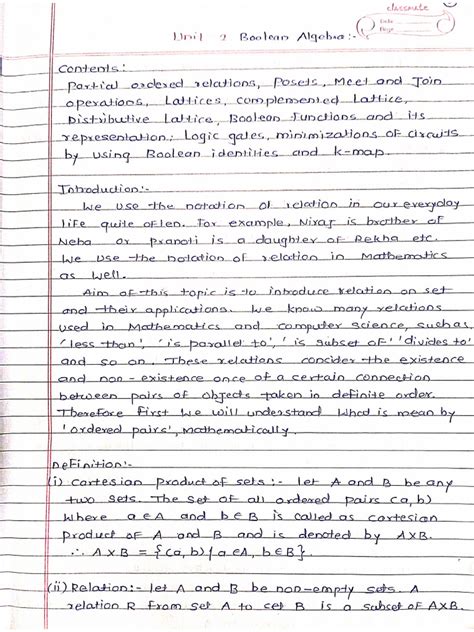 classmate
Date
Page
Unit 2 Boolean Algebra:-
Contents:
Partial ordered relations, Posets, Meet and Join
operations, Lattices, complemented Lattice,
Distributive Lattice, Boolean Functions and its
representation. Logic gates, minimizations of circuits
by using Boolean identities and k-map.
Introduction:-
We use the notation of relation in our everyday
life quite often. For example, Niraj is brother of
Neha or pranoti is a daughter of Rekha etc.
We use the notation of relation in Mathematics
as well.
Aim of this topic is to introduce relation on set
and their applications. We know many relations
used in Mathematics and computer science, such as
'less than', 'is parallel to', 'is subset of' 'divides to'
and so on. These relations concider the existence
and non-existence once of a certain connection
between pairs of objects taken in definite order.
Therefore first we will understand what is mean by
'ordered pairs', Mathematically.
Definition:-
(i) Cartesian product of sets:- let A and B be any
two sets. The set of all ordered pairs (a, b)
where a ∈ A and b ∈ B is called as cartesian
product of A and B and is denoted by A×B.
∴ A×B = {(a, b) / a ∈ A, b ∈ B}.
(ii) Relation:- let A and B be non-empty sets. A
relation R from set A to set B is a subset of A×B.